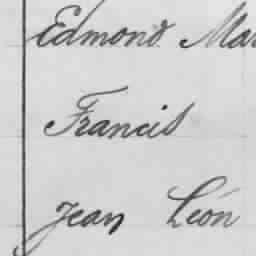 Edmond Mar
Francis
Jean Léon